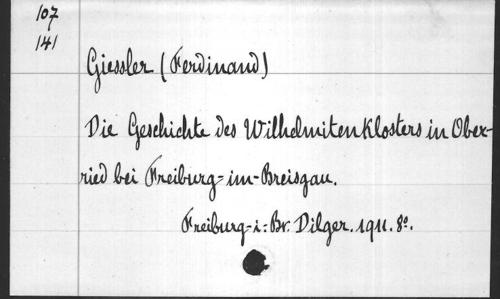 107
141
Giessler (Ferdinand)
Die Geschichte des Wilhelmitenklosters in Ober-
ried bei Freiburg-im-Breisgau.
Freiburg-i-Br. Dilger. 1911. 8º.